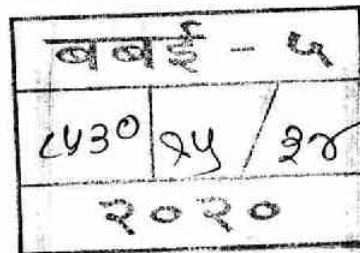 बबई - ५
८५३० १५ / २४
२०२०